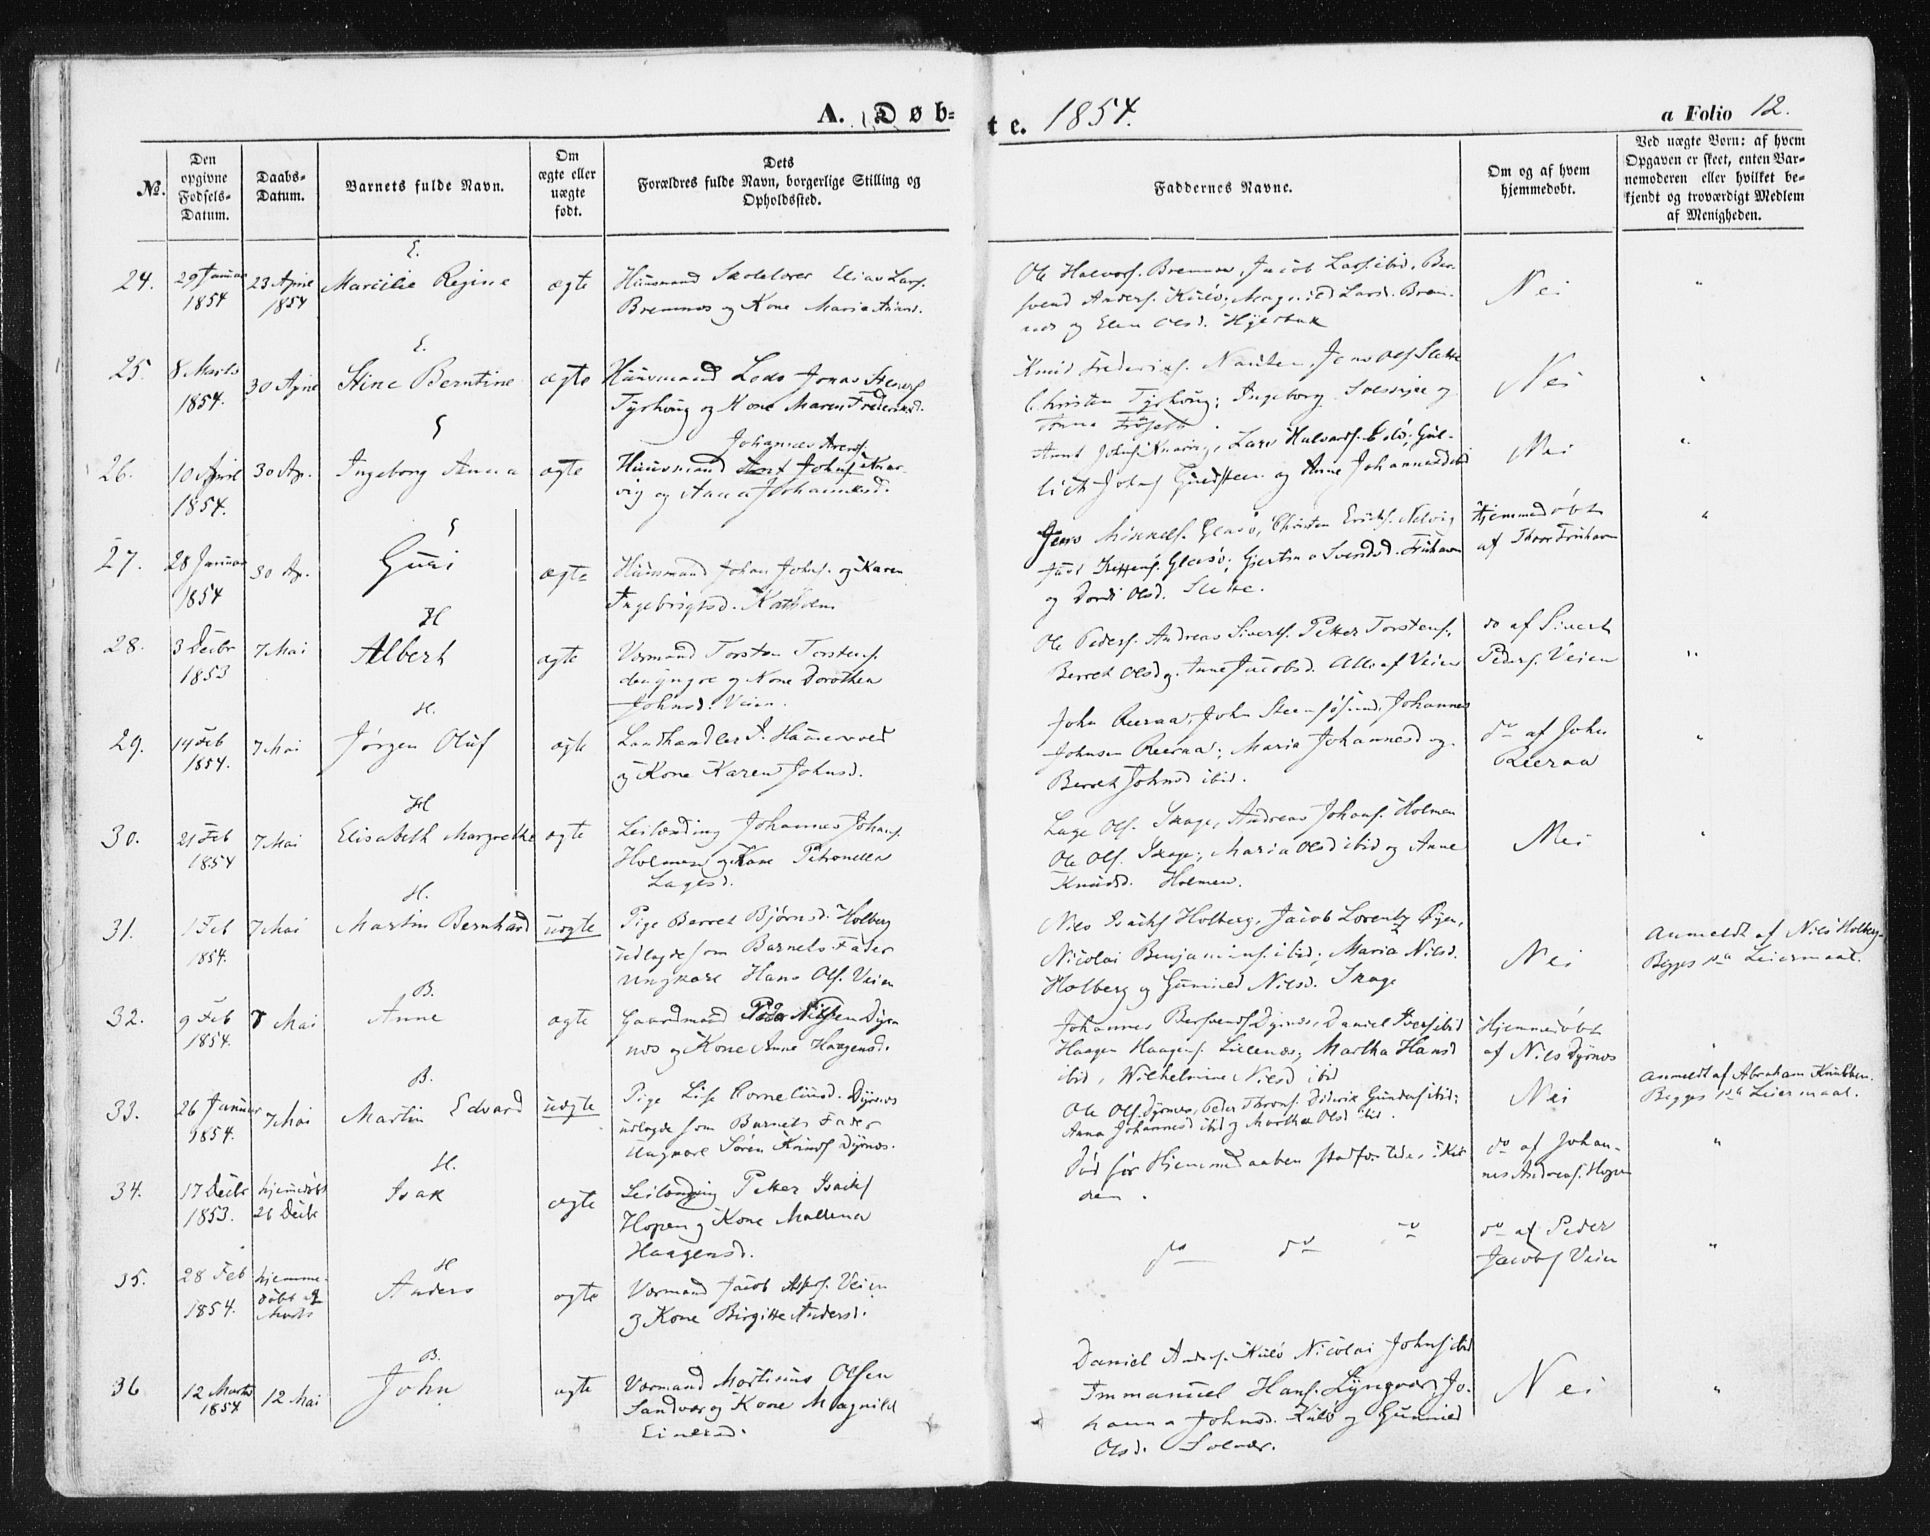 A. Døb=
te. 1854.
a Folio 12.
No.
Den opgivne Fødsels-Datum.
Daabs-Datum.
Barnets fulde Navn.
Om ægte eller uægte født.
Dets Forældres fulde Navn, borgerlige Stilling og Opholdssted.
Faddernes Navne.
Om og af hvem hjemmedøbt.
Ved uægte Børn: af hvem Opgaven er skeet, enten Barnemoderen eller hvilket bekjendt og troværdigt Medlem af Menigheden.
E.
24. 29 Januar 1854 23 April 1854 Regine ægte
Huusmand Skolelærer Elias Lars.
Bremnes og Kone Maria
Ole Halvors. Bremnes, Jacob Lars. ibid, Ber-
svend Anders. Kulø; Lars. Brem-
nes og Elen Olsd.
Nei "
E.
25. 8 Marts 1854. 30 April Stine Berntine ægte
Huusmand Jonas
Tyrhoug og Kone Maren
Knud Frederiks. Jens Ols. Slette
Christen Tyrhoug; Ingeborg og
Nei "
26. 10 April 1854. 30 Ap. Ingeborg Anna ægte
Johannes
Huusmand Johns. Knar-
vig og Anna Johannesd.
Johns. Knarvig, Lars Halvors.
Johns. og Anne Johannesd. ibid
Nei "
27. 28 Januar 1854 30 Ap. Guri ægte
Huusmand Johan Johns. og Karen
Ingebrigtsd. Katholm
Jens Mikkels. Glasø, Christen Ericks.
Glasø; Svendsd.
og Olsd. Slette.
Hjemmedøbt
af Thore
"
H
28. 3 Decbr 1853 7 Mai Albert ægte
Værmand Torsten Torstens.
den yngre og Kone Dorothea
Johnsd. Veien.
Ole Peders. Andreas Siverts. Petter Torstens.
Berret Olsd og Anne Jacobsd. Alle af Veien
do af Sivert
Peders. Veien
"
H.
29. 14 Feb 1854. 7 Mai Jørgen Oluf ægte
Landhandler
og Kone Karen Johnsd.
John Reeraa, John Johannes
Johnsen Reeraa; Maria Johannesd og
Berret Johnsd ibid.
do af John
Reeraa
"
H
30. 21 Feb 1854 7 Mai Elisabeth Margrethe ægte
Leilænding Johannes Johans.
Holmen og Kone Petronella
Lagesd.
Lage Ols. Skage, Andreas Johans. Holmen
Ole Ols. Skage; Maria Olsd ibid og Anne
Knudsd. Holmen.
Nei "
H.
31. 1 Feb 1854. 7 Mai Martin Bernhard uægte
Pige Berret Bjørnsd. Holberg
udlagde som Barnets Fader
Ungkarl Hans Ols. Veien
Nils Isaks Holberg, Jacob Lorentz Øyen,
Nicolai Benjamins. ibid; Maria Nilsd.
Holberg og Gunnild Nilsd. Skage
Nei
Anmeldt af Nils Holberg.
Begges 1ste Leiermaal.
B.
32. 9 Feb 1854. 7 Mai Anne ægte
Gaardmand Peder Nilsen Dyrn-
nes og Kone Anne Haagensd.
Johannes Bersvends Dyrnes, Daniel Ivers ibid
Haagen Haagens. Lillenæs; Martha Hansd
ibid, Wilhelmine Nilsd ibid
Hjemmedøbt
af Nils Dyrnes
"
B.
33. 26 Januar 1854. 7 Mai Martin Edvard uægte
Pige Lise Corneliusd. Dyrnes
udlagde som Barnets Fader
Ungkarl Søren Knuds Dyrnes.
Ole Ols. Dyrnes, Peder Didrik ibid;
Anna Johannesd ibid og Martha Olsd ibid.
Nei
Anmeldt af Abraham
Begges 1ste Leiermaal.
H.
34. 17 Decbr 1853. hjemmedøbt 26 Decbr Isak ægte
Leilænding Petter Isaks
Hopen og Kone
Haagensd.
Død før Hjemmedaaben stadfæstedes i Kir-
ken.
do af Johan-
nes Andreas. Hopen
"
H
35. 28 Feb 1854. hjemme-
døbt
Marts Anders ægte
Værmand Jacob Veien
og Kone Birgitte Andersd.
do do do
do af Peder
Jacobs Veien
"
B.
36 12 Marts 1854 12 Mai John ægte
Værmand Martinus Olsen
Sandvær og Kone Magnild
Einersd.
Daniel Anders. Kulø Nicolai Johns ibid
Immanuel Hans. Lyngvær, Jo-
hanna Johnsd. Kulø og Gunnild
Olsd. Solvær.
Nei "